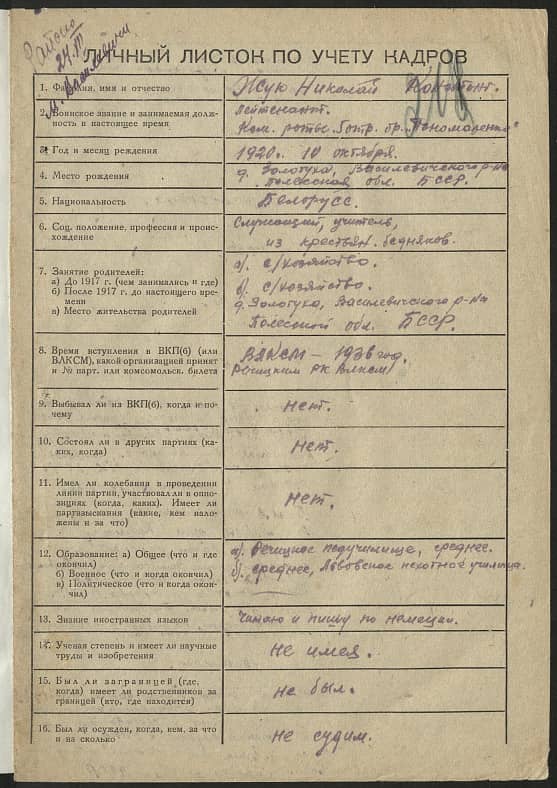 ЛИЧНЫЙ ЛИСТОК ПО УЧЕТУ КАДРОВ
1. Фамилия, имя и отчество
Жук Николай
2. Воинское звание и занимаемая долж-
ность в настоящее время
лейтенант.
Ком. роты 1 отр. бр. "Пономаренко"
3. Год и месяц рождения
1920г. 10 октября.
4. Место рождения
д. Золотуха, Василевичского р-на
Полесская обл. БССР.
5. Национальность
Белорусс.
6. Соц. положение, профессия и проис-
хождение
Служащий, учитель,
из крестьян. бедняков.
7. Занятие родителей:
а) До 1917 г. (чем занимались и где)
б) После 1917 г. до настоящего вре-
мени
в) Место жительства родителей
а). с/хозяйство.
б. с/хозяйство.
д. Золотуха, Василевичского р-на
Полесской обл. БССР.
8. Время вступления в ВКП(б) (или
ВЛКСМ), какой организацией принят
и № парт. или комсомольск. билета
ВЛКСМ – 1936 год.
Речицким РК ВЛКСМ
9. Выбывал ли из ВКП(б), когда и по-
чему
нет.
10. Состоял ли в других партиях (ка-
ких, когда)
нет.
11. Имел ли колебания в проведении
линии партии, участвовал ли в оппо-
зициях (когда, каких). Имеет ли
партвзыскания (какие, кем нало-
жены и за что)
нет.
12. Образование: а) Общее (что и где
окончил)
б) Военное (что и когда окончил)
в) Политическое (что и когда окон-
чил)
а). Речицкое педучилище, среднее.
б). среднее, Львовское пехотное училище.
13. Знание иностранных языков
Читаю и пишу по немецки.
14. Ученая степень и имеет ли научные
труды и изобретения
не имея.
15. Был ли заграницей (где,
когда) имеет ли родственников за
границей (кто, где находится)
не был.
16. Был ли осужден, когда, кем, за что
и на сколько
не судим.